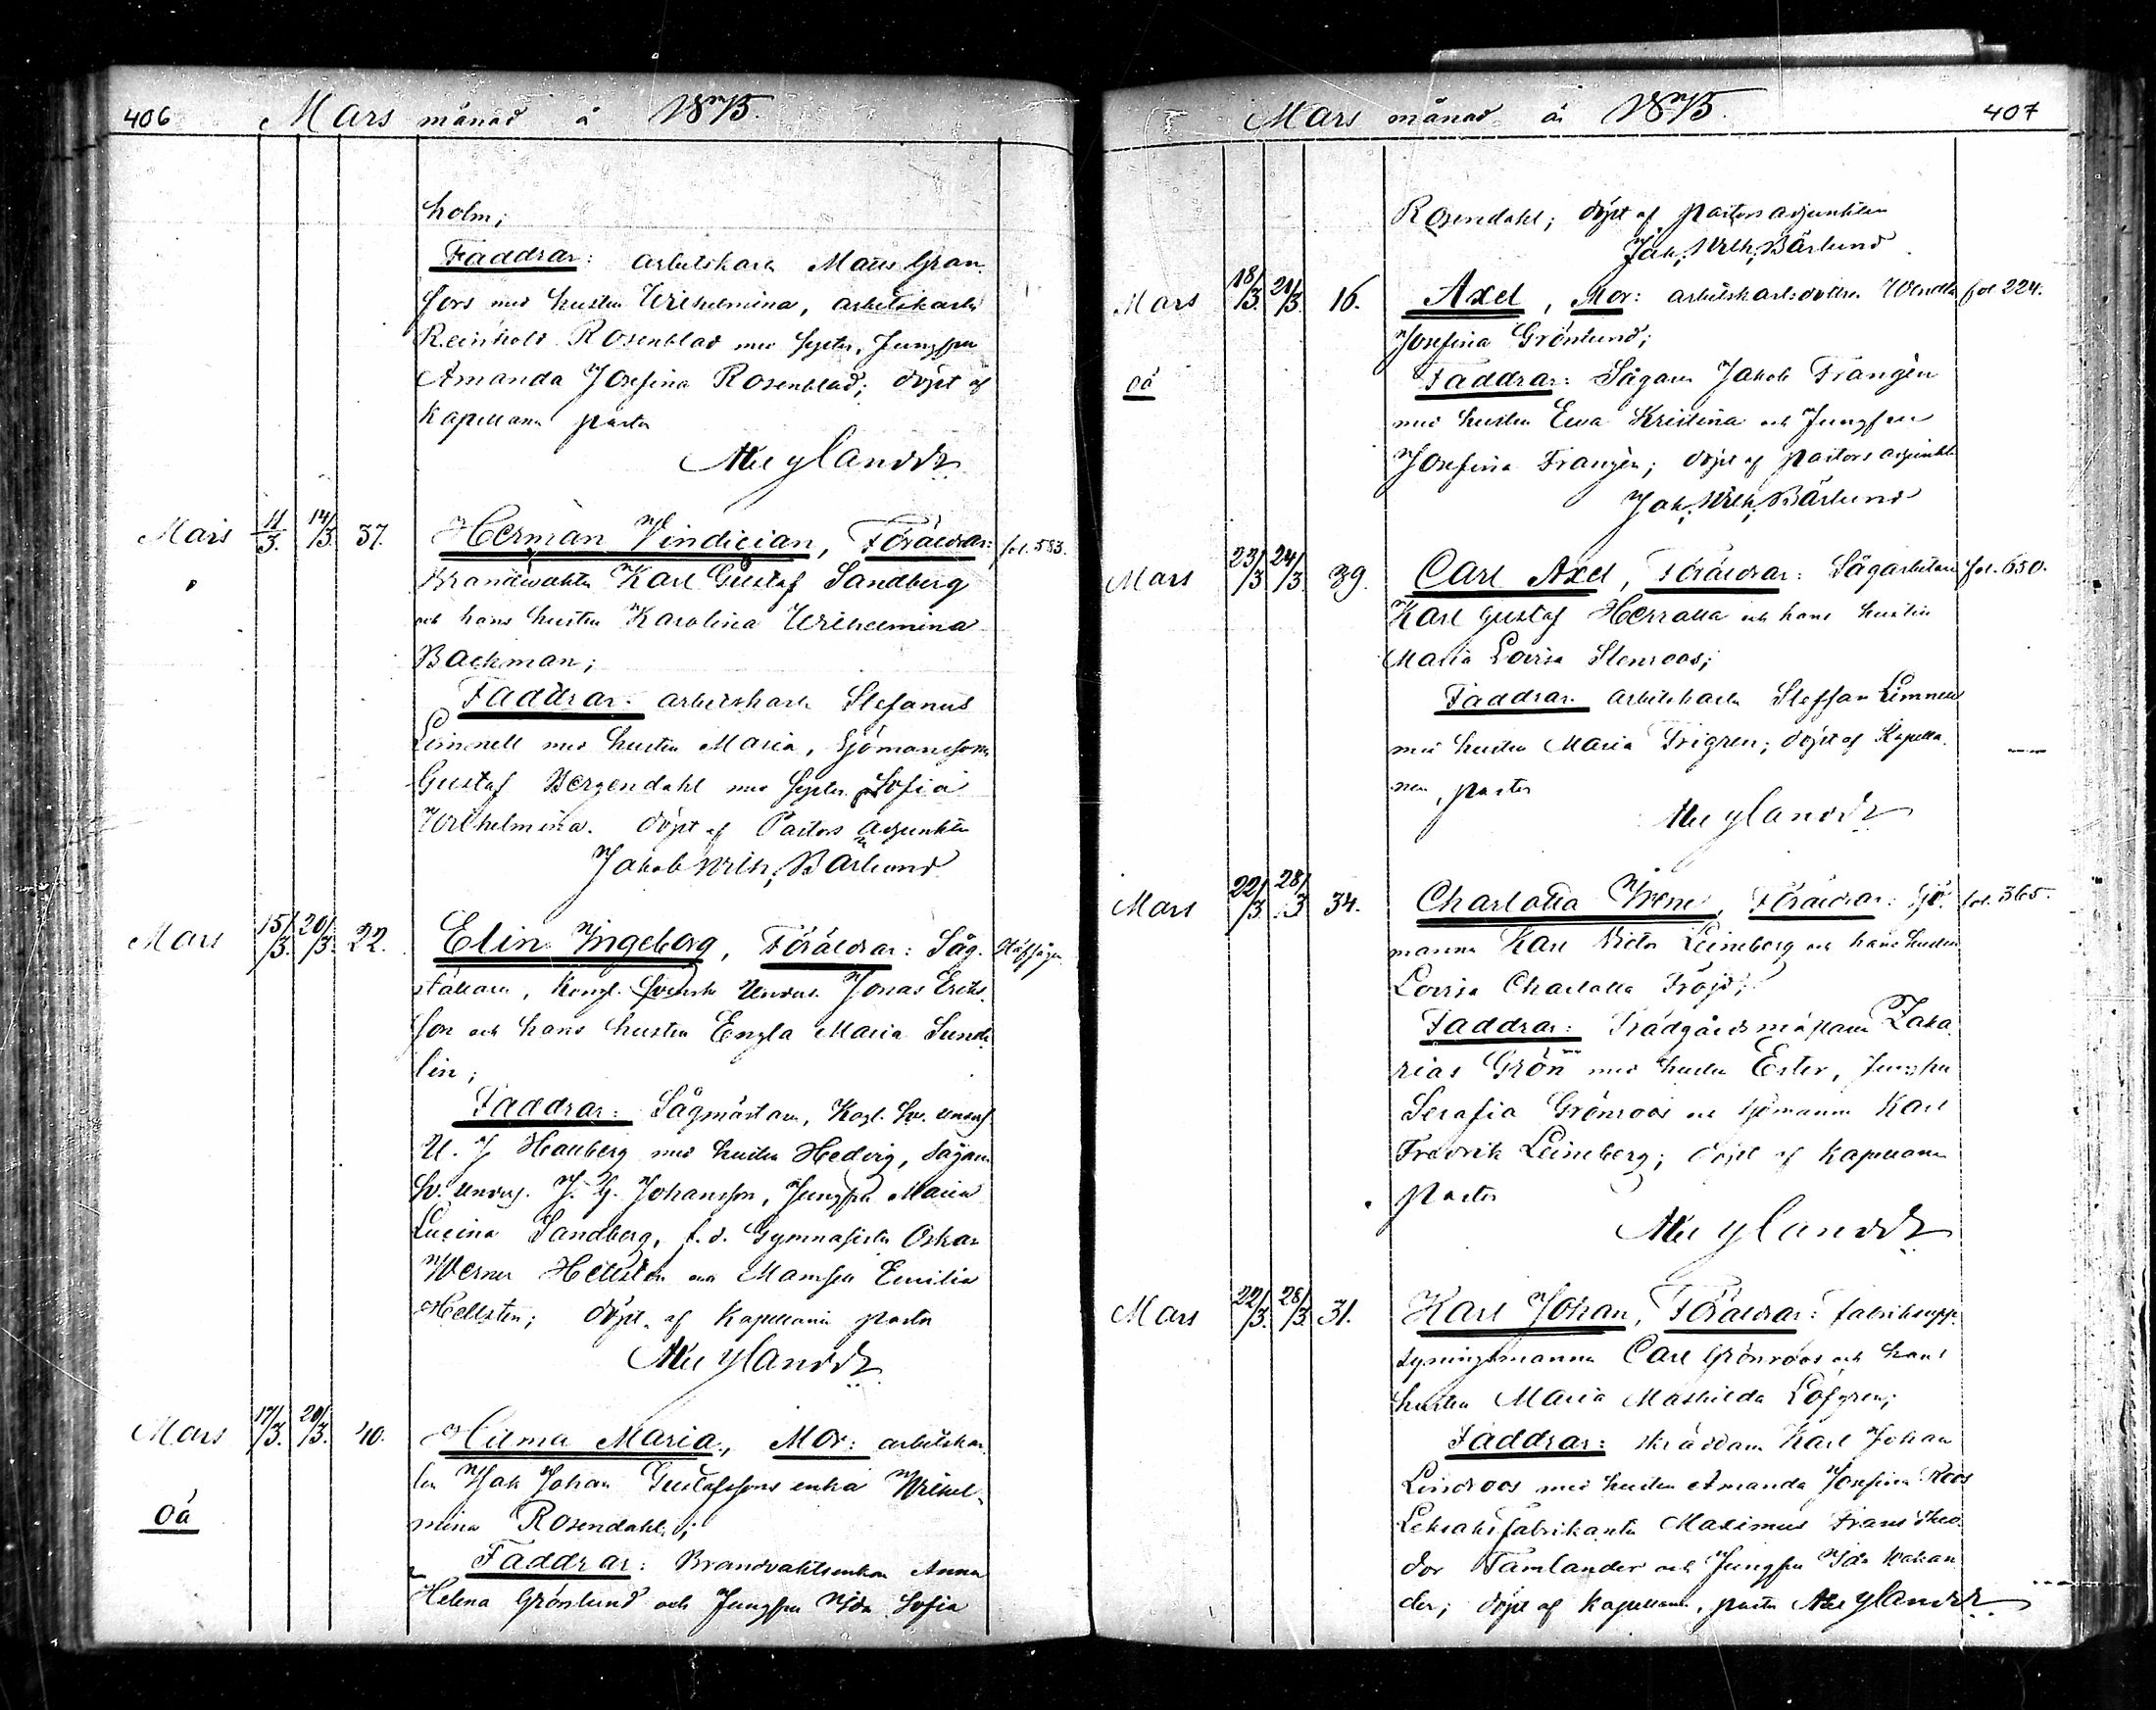 406 Mars månad å 1875.
holm;
Faddrar: arbetskarln Matts Gran
fors med hustru Wilhelmina, arbetskarln
Reinhold Rosenblad med syster, Jungfru
Amanda Josefina Rosenblad; döpt af
Kapellanen pastor
Nylander
Mars 11/3. 14/3. 37. Herman Vindician, Föräldrar: fol. 583.
Brandwakten Karl Gustaf Sandberg
och hans hustru Karolina Wilhelmina
Backman;
Faddrar: arbetskarln Stefanus
Limnell med hustru Maria, Sjömanssonen
Gustaf Bergendahl med syster Sofia
Wilhelmina. döpt af Pastors adjunkten
Jakob Wilh; Bärlund
Mars 15/3. 20/3. 22. Elin Ingeborg, Föräldrar: Såg-
ställaren, Kongl. Svensk Unders. Jonas Eriks
son och hans hustru Engla Maria Sund
lin;
Faddrar: Sågmästaren, Kogl. Sv. unders
U. J Hauberg med hustru Hedvig, sågaren
Sv. unders. J. G. Johansson, Jungfru Maria
Lucina Sandberg, f. d. Gymnasisten Oskar
Werner Hellsten och Mamsell Emilia
Hellsten; döpt af Kapellanen pastor
Nylander
Mars 17/3. 20/3. 40. Hilma Maria, Mor: arbetskar
len Isak Johan Gustafssons enka Wilhel-
oä
mina Rosendahl;
Faddrar: Brandvaktsenkan Anna
Helena Grönlund och Jungfru Ida Sofia
Mars månad å 1875. 407
Rosendahl; döpt af pastors adjunkten
Jak; Wilh; Bärlund
Mars 18/3. 21/3. 16. Axel, Mor: arbetskarlsdottren Wendla fol 224.
Josefina Grönlund;
oä
Faddrar: Sågaren Jakob Frangén
med hustru Eva Kristina och Jungfru
Josefina Frangén; döpt af pastors adjunkten
Jak; Wilh; Bärlund
Mars 23/3 24/3. 39. Carl Axel, Föräldrar: Sågarbetaren fol. 650.
Karl Gustaf Herrala och hans hustru
Maria Lovisa Stenroos;
Faddrar: arbetskarln Steffan Limnell
med hustru Maria Frigren; döpt af Kapella-
nen, pastor
Nylander
Mars 22/3 28/3 34. Charlotta Irene, Föräldrar: Sjö- fol. 365.
mannen Karl Victor Leineberg och hans hustru
Lovisa Charlotta Fröjd;
Faddrar: Trädgårdsmästaren Zaka
rias Grön med hustru Ester, Jungfru
Serafia Grönroos och sjömannen Karl
Fredrik Leineberg; döpt af Kapellanen
pastor
Nylander
Mars 22/3. 28/3 31. Karl Johan, Föräldrar: fabriksupp-
syningsmannen Carl Grönroos och hans
hustru Maria Mathilda Löfgren;
Faddrar: skräddaren Karl Johan
Lindroos med hustru Amanda Josefina Roos
Leksaksfabrikanten Maximus Frans Theo-
dor Tamlander och Jungfru Ida
der; döpt af Kapellanen, pastor Nylander